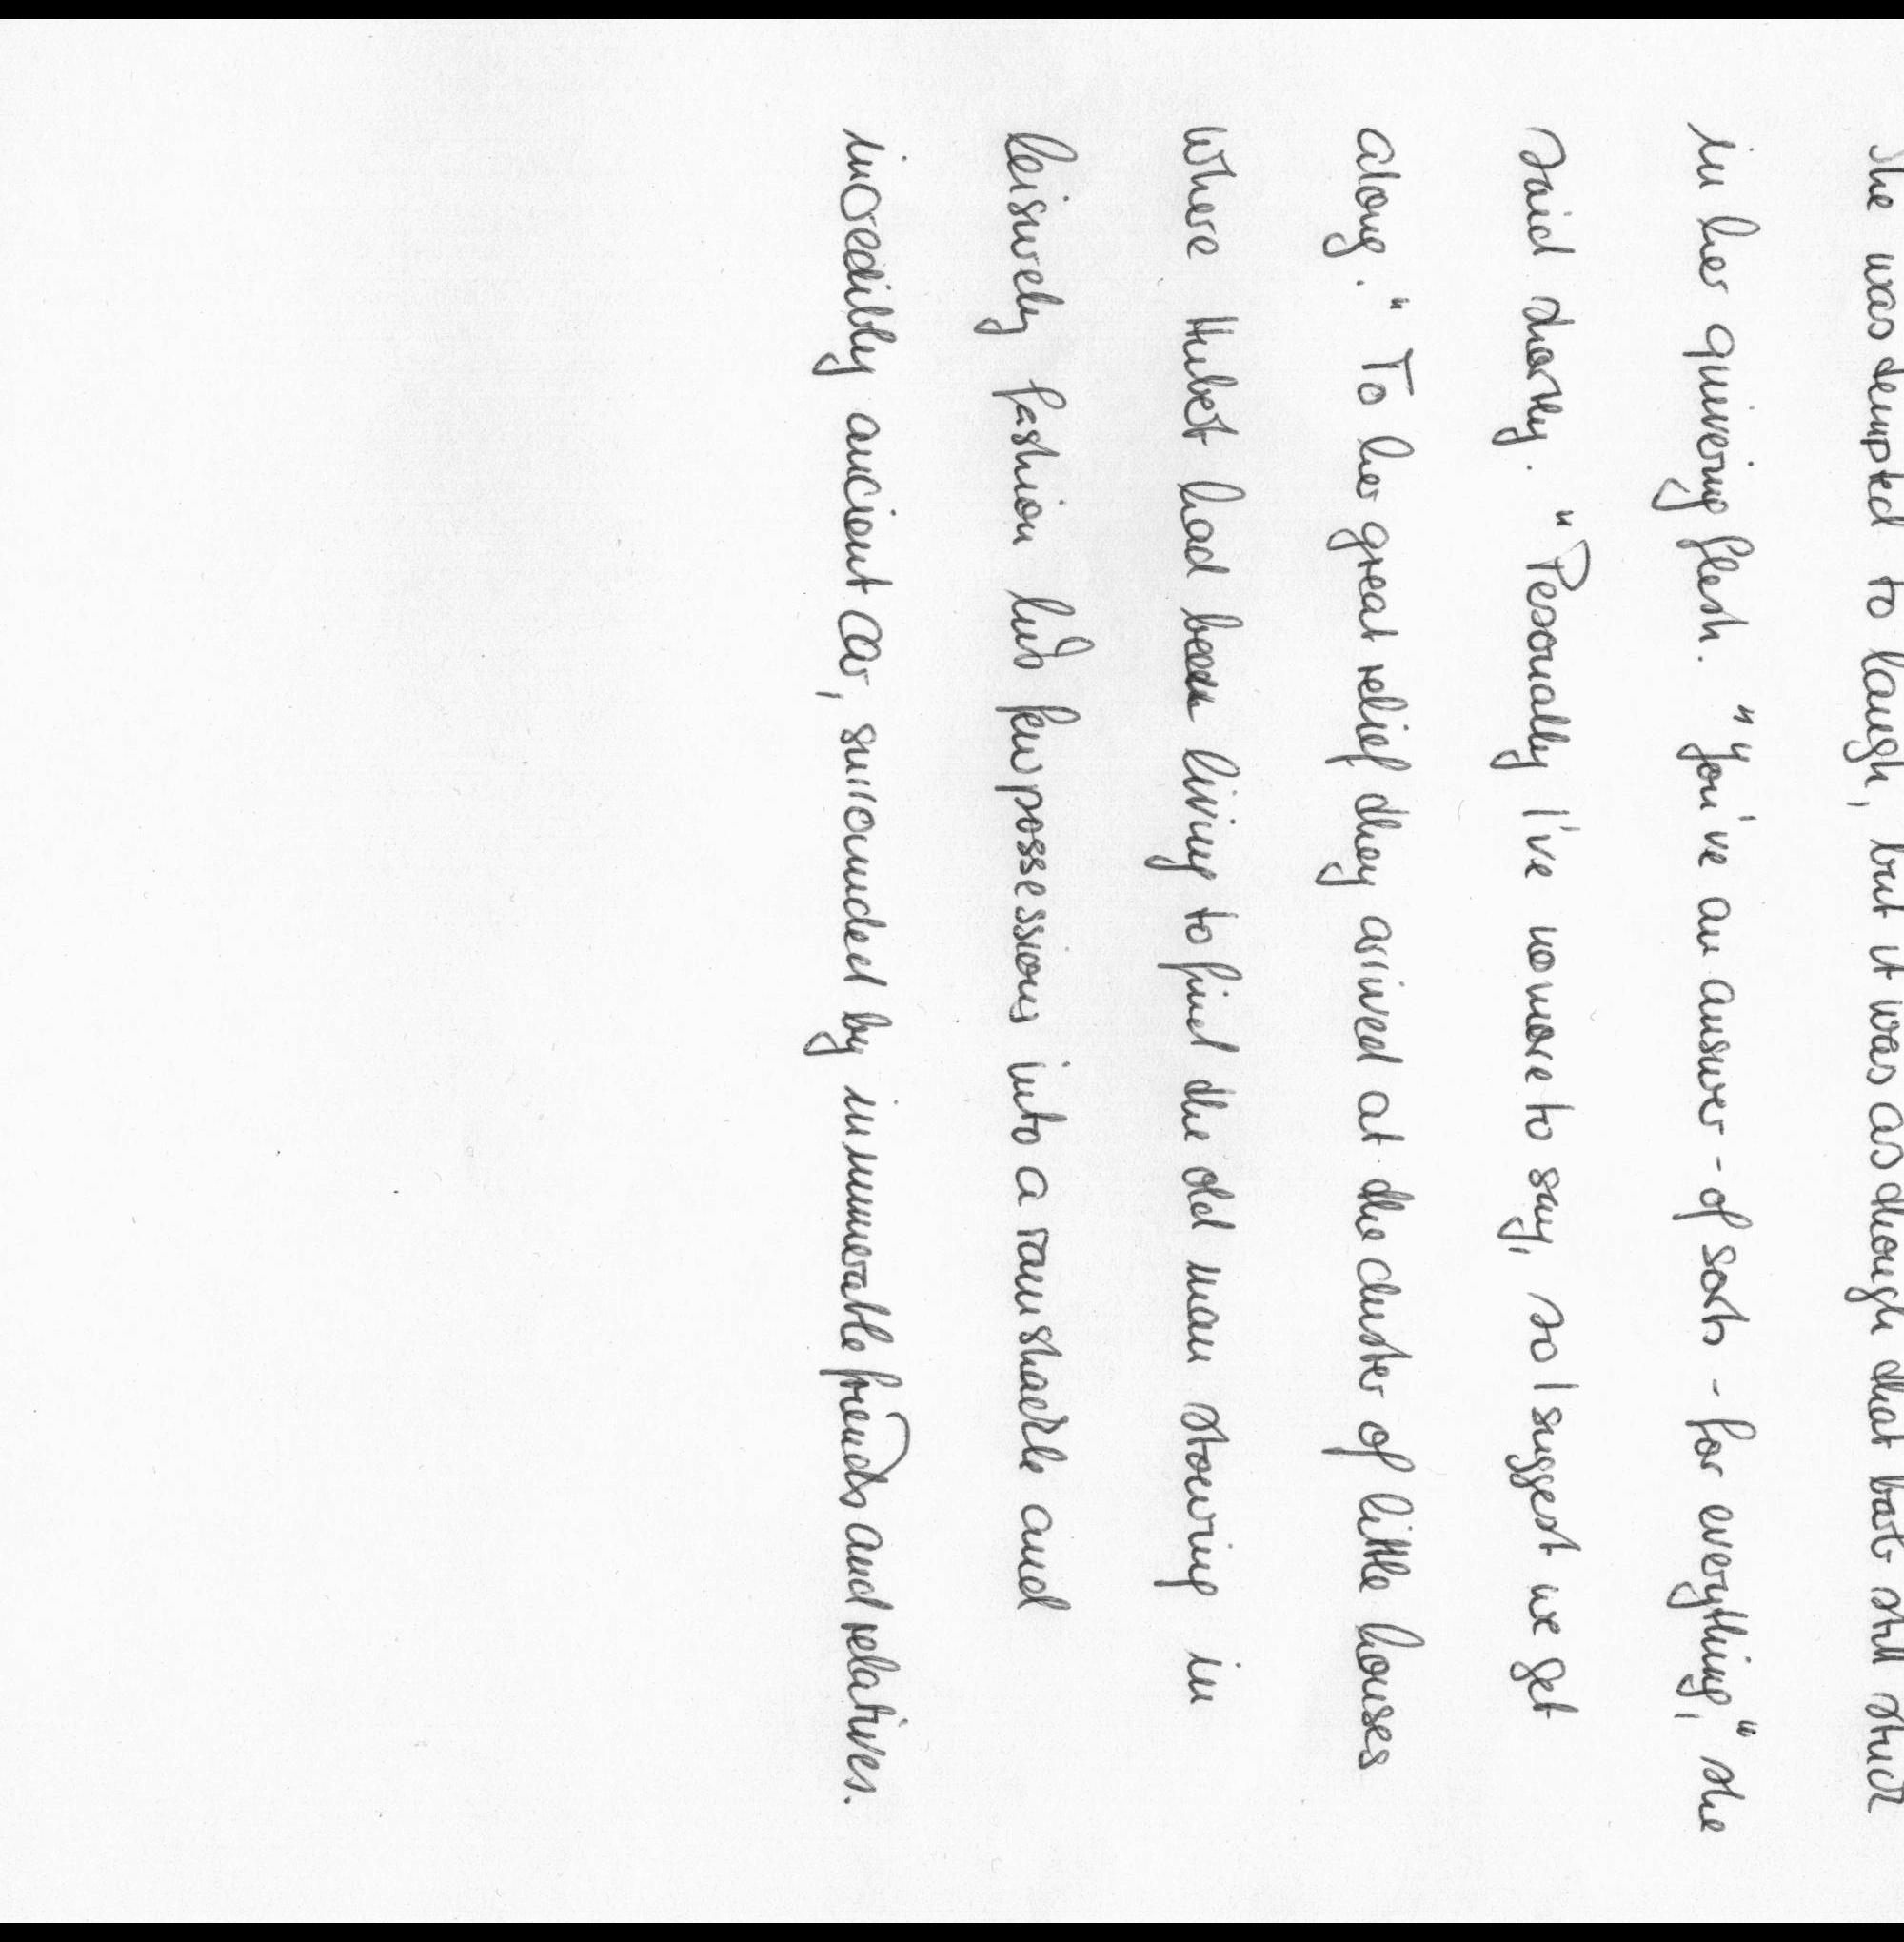 She was tempted to laugh, but it was as though that barb still stuck
in her quivering flesh. "You've an answer - of sorts - for everything," she
said shortly. "Personally I've no more to say, so I suggest we get
along." To her great relief they arrived at the cluster of little houses
where Hubert had been living to find the old man stowing in
leisurely fashion his few possessions into a ramshackle and
incredibly ancient car, surrounded by innumerable friends and relatives.